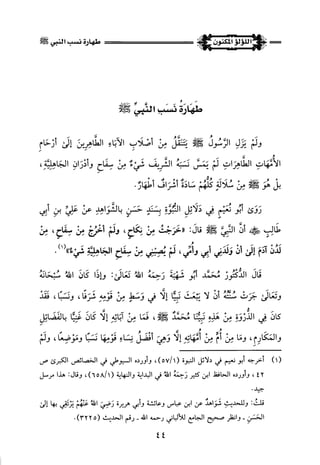 اللؤلؤ المكنون
طهارة نسب النبي ﷺ
طَهَارَةُ نَسَبِ النَّبِيِّ ﷺ
وَلَمْ يَزَلِ الرَّسُولُ ﷺ يَتَنَقَّلُ مِنْ أَصْلَابِ الآبَاءِ الطَّاهِرِينَ إِلَىٰ أَرْحَامِ
الأُمَّهَاتِ الطَّاهِرَاتِ لَمْ يَمَسَّ نَسَبَهُ الشَّرِيفَ شَيْءٌ مِنْ سِفَاحٍ وَأَدْرَانِ الجَاهِلِيَّةِ،
بَلْ هُوَ ﷺ مِنْ سُلَالَةٍ كُلُّهُمْ سَادَةٌ أَشْرَافٌ أَطْهَارٌ.
رَوَىٰ أَبُو نُعَيْمٍ فِي دَلَائِلِ النُّبُوَّةِ بِسَنَدٍ حَسَنٍ بِالشَّوَاهِدِ عَنْ عَلِيِّ بنِ أَبِي
طَالِبٍ ﷺ أَنَّ النَّبِيَّ ﷺ قَالَ: «خَرَجْتُ مِنْ نِكَاحٍ، وَلَمْ أَخْرُجْ مِنْ سِفَاحٍ، مِنْ
لَدُنْ آدَمَ إِلَىٰ أَنْ وَلَدَنِي أَبِي وَأُمِّي، لَمْ يُصِبْنِي مِنْ سِفَاحِ الجَاهِلِيَّةِ شَيْءٌ»(١).
قَالَ الدُّكْتُورُ مُحَمَّد أَبُو شَهْبَة رَحِمَهُ اللهُ تَعَالَىٰ: وَإِذَا كَانَ اللهُ سُبْحَانَهُ
وَتَعَالَىٰ جَرَتْ سُنَّتُهُ أَنْ لَا يَبْعَثَ نَبِيًّا إِلَّا فِي وَسَطٍ مِنْ قَوْمِهِ شَرَفًا، وَنَسَبًا، فَقَدْ
كَانَ فِي الذُّرْوَةِ مِنْ هَذِهِ نَبِيُّنَا مُحَمَّدٌ ﷺ، فَمَا مِنْ آبَائِهِ إِلَّا كَانَ غَنِيًّا بِالفَضَائِلِ
وَالمَكَارِمِ، وَمَا مِنْ أُمٍّ مِنْ أُمَّهَاتِهِ إِلَّا وَهِيَ أَفْضَلُ نِسَاءِ قَوْمِهَا نَسَبًا وَمَوْضِعًا، وَلَمْ
(١) أخرجه أبو نعيم في دلائل النبوة (٥٧/١)، وأورده السيوطي في الخصائص الكبرى ص
٤٢، وأورده الحافظ ابن كثير رَحِمَهُ اللهُ في البداية والنهاية (٦٥٨/١)، وقال: هذا مرسل
جيد.
قلتُ: وللحديثِ شَوَاهدُ عن ابن عباس وعائشة وأبي هريرة رَضِيَ اللهُ عَنْهُمْ يَرْتَقِي بها إلى
الحَسَنِ - وانظر صحيح الجامع للألباني رحمه الله - رقم الحديث (٣٢٢٥).
٤٤